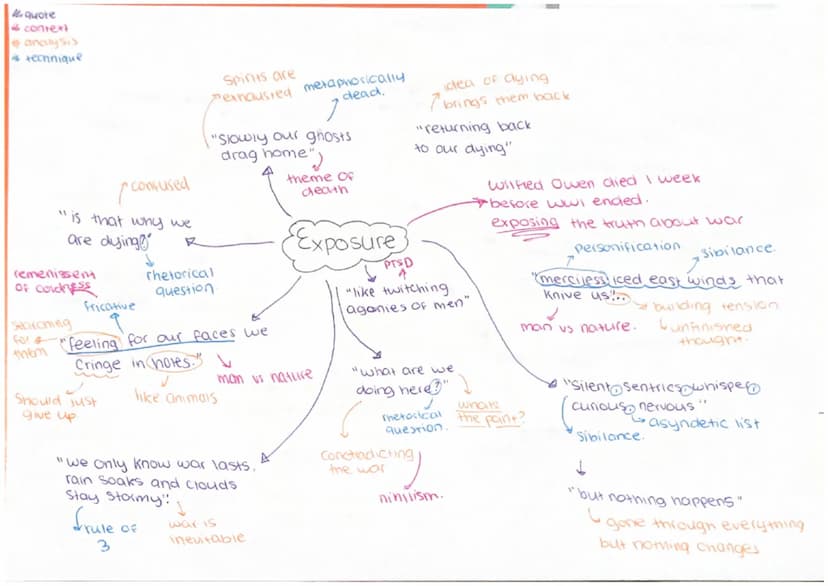 quote
context
analysis
technique
spirits are
exhausted
metaphorically
dead.
idea of dying
brings them back
"Slowly our ghosts
drag home"
theme of
death
"returning back
to our dying"
confused
"is that why we
are dying?"
rhetorical
question
Exposure
Wilfred Owen died 1 week
before WW1 ended.
exposing the truth about war
personification
sibilance
"merciless iced east winds that
knive us..."
man vs nature.
building tension
unfinished
thought.
PTSD
"like twitching
agonies of men"
remenissent
of coldness
fricative
searching
for them
"feeling for our faces we
cringe in holes."
man vs nature
Should just
give up
like animals
"what are we
doing here?"
rhetorical
question.
whats
the point?
contradicting
the war
nihilism.
"Silent, sentries, whisper,
curious, nervous"
asyndetic list
sibilance.
"but nothing happens"
gone through everything
but nothing changes
"we only know war lasts,
rain soaks and clouds
stay stormy".
rule of
3
war is
inevitable